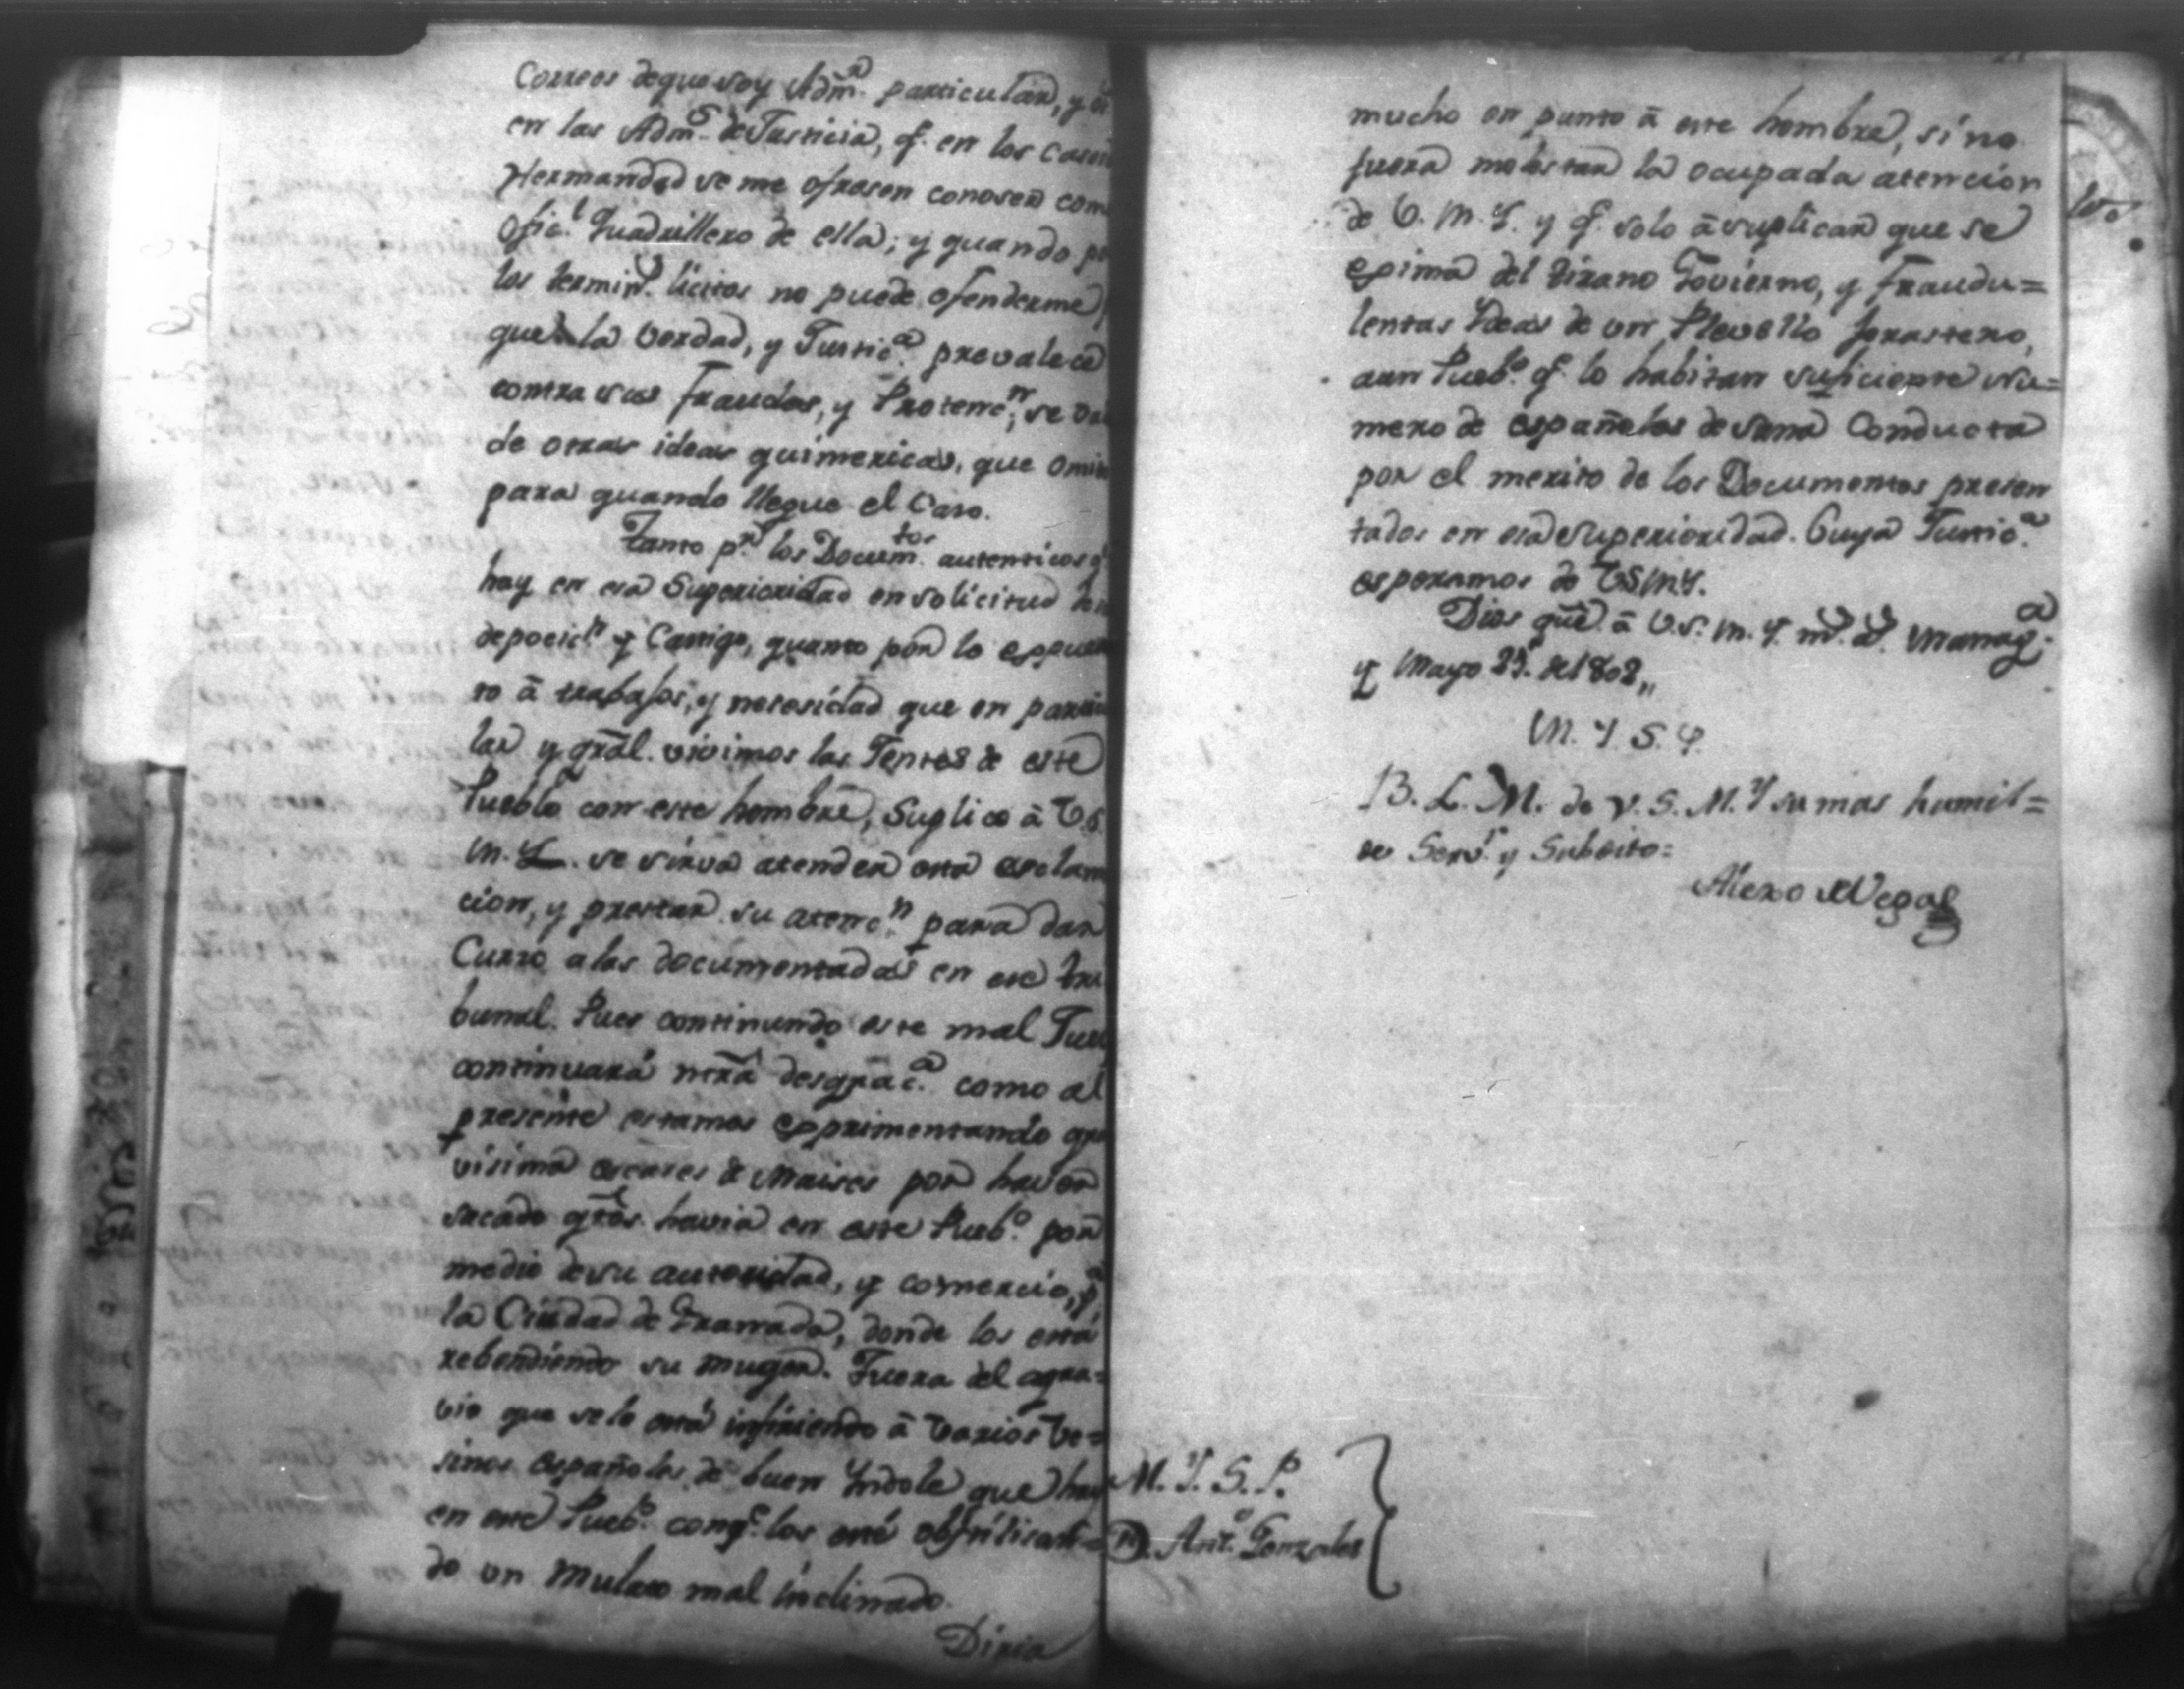 Correos de que soy Adm.r particular, y
en las Adm.s de Justicia, q.e en los casos
Hermandad se me ofresen conoser com
ofic.l Quadrillero de ella; y quando p
los termin.s licitos no puede ofenderme,
que la verdad, y Justic.a prevalece
contra sus fraudes, y Protenc.n, se
de otras ideas quimericas, que omi
para quando llegue el Caso.
Tanto p.r los Docum.tos autenticos q
hay en esa Superioridad en solicitud
deposic.n y Castigo, quanto por lo espues
to â trabajos, y nesesidad que en particu
lar y gral. vivimos las Jentes de este
Pueblo con este hombre, Suplico â V.S.
M.Y. se sirva atender esta esclam
cion, y prestar su atenc.n para dar
Curso a las documentadas en ese tri
bunal. Pues continundo este mal Jues
continuará ntrâ desgrac.a como al
presente estamos esprimentando gra
visima escases de Maises por haver
sacado q.tos havia en este Pueb.o por
medio de su autoridad, y comercio, p.a
la Ciudad de Granada, donde los está
rebendiendo su muger. Fuera del agra=
vio que se le está infiriendo â varios ve=
sinos españoles de buen Yndole que hay
en este Pueb.o conq.e los está
do un Mulato mal inclinado.
Diria
mucho en punto â este hombre, si no
fuera molestar la ocupada atencion
de V.M.Y. y q.e solo â suplicar que se
esima del tirano Govierno, y fraudu=
lentas Ydeas de un Plevello forastero,
aun Pueb.o q.e lo habitan suficiente Nu=
mero de españoles de sana Conducta
por el merito de los Documentos presen
tados en esa Superioridad. Cuya Justic.a
esperamos de VSMY.
Dios gūe. â V.S. M.Y. m.s a.s Manag.a
y Mayo 25. de 1802,,
M. Y. S. P.
B. L. M. de V. S. M. Y su mas humil=
de Serv.r y Subdito=
Alexo Vega
M. Y. S. P.
D. Ant.o Gonzales